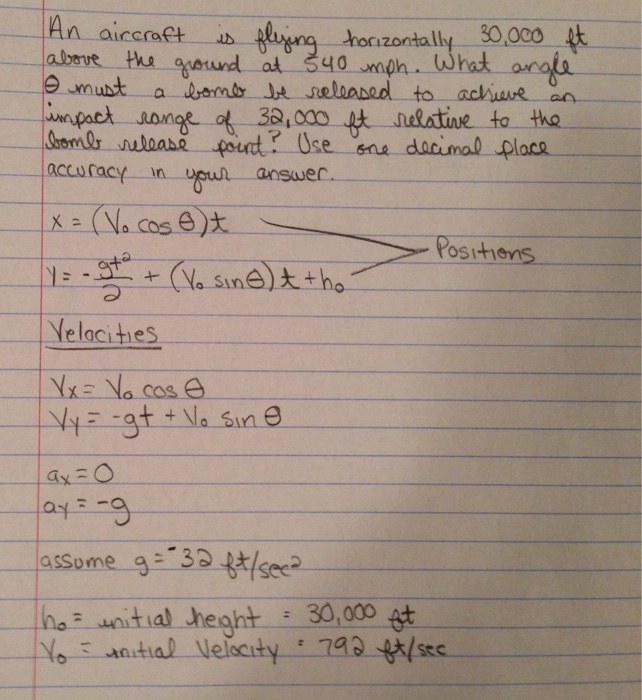 An aircraft is flying horizontally 30,000 ft
above the ground at 540 mph. What angle
θ must a bomb be released to achieve an
impact range of 32,000 ft relative to the
bomb release point? Use one decimal place
accuracy in your answer.
x = (V₀ cos θ)t
Positions
Y = - gt²/2 + (V₀ sinθ)t + h₀
Velocities
Vx = V₀ cos θ
Vy = -gt + V₀ sin θ
ax = 0
ay = -g
assume g = -32 ft/sec²
h₀ = initial height = 30,000 ft
V₀ = initial Velocity = 792 ft/sec